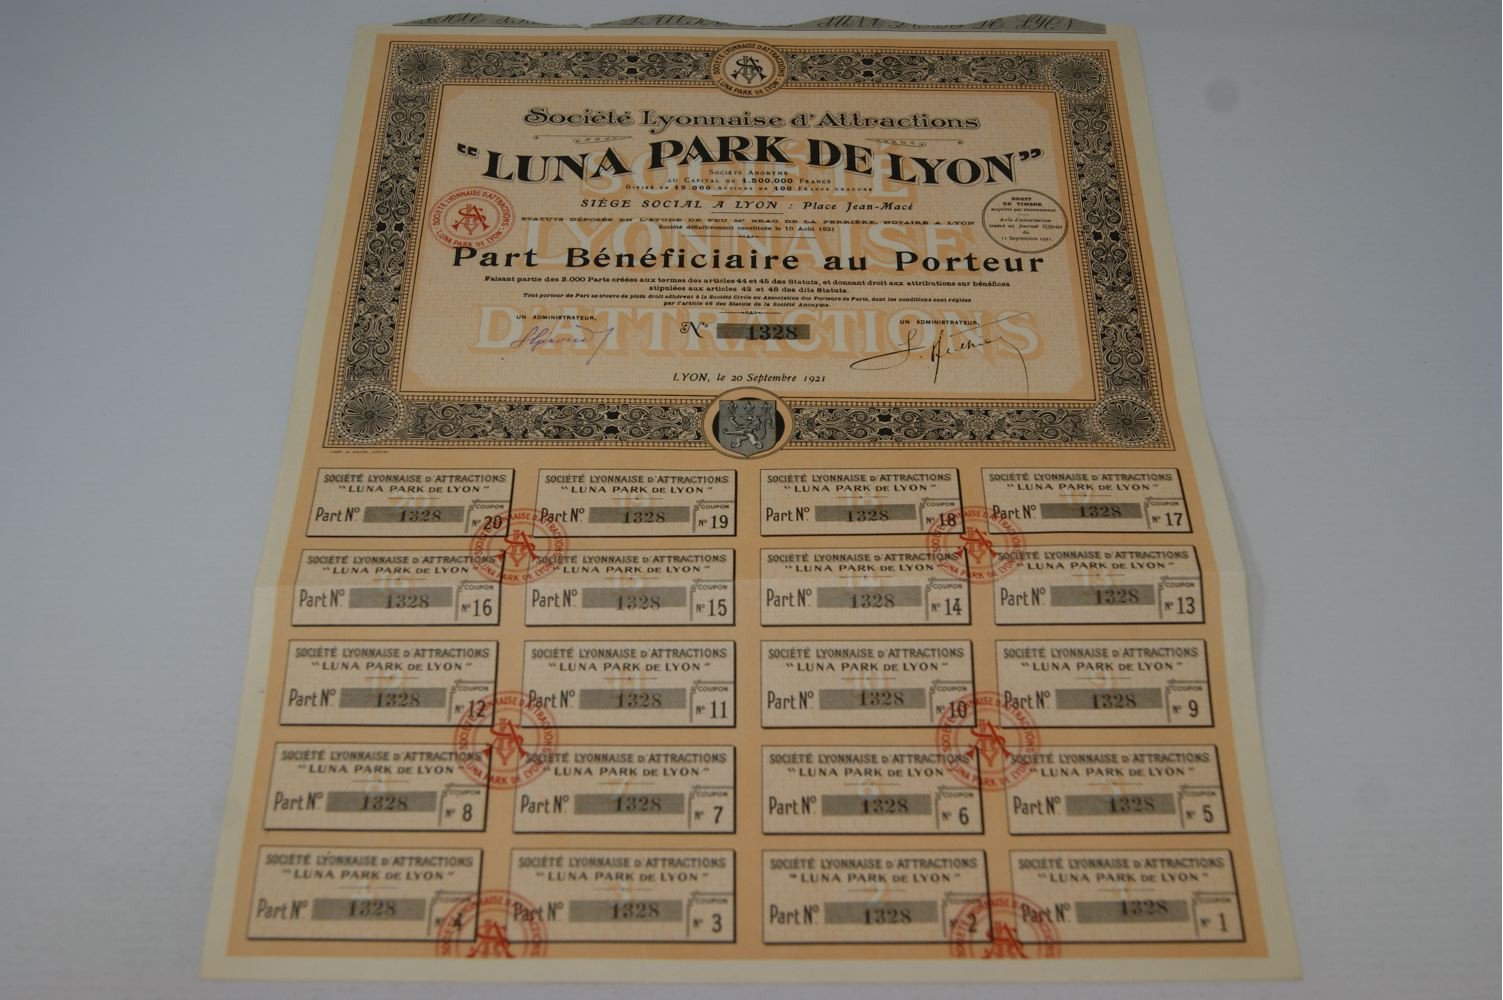 SOCIÉTÉ LYONNAISE D'ATTRACTIONS
LUNA PARK DE LYON
Société Lyonnaise d'Attractions
“LUNA PARK DE LYON”
SOCIÉTÉ ANONYME
AU CAPITAL DE 1.500.000 FRANCS
DIVISÉ EN 15.000 ACTIONS DE 100 FRANCS CHACUNE
SIÈGE SOCIAL A LYON : Place Jean-Macé
STATUTS DÉPOSÉS EN L'ÉTUDE DE FEU Me BRAC DE LA PERRIÈRE, NOTAIRE A LYON
Société définitivement constituée le 10 Août 1921
SOCIÉTÉ LYONNAISE D'ATTRACTIONS
LUNA PARK DE LYON
DROIT
DE TIMBRE
acquitté par abonnement
Avis d'autorisation
inséré au Journal Officiel
du
11 Septembre 1921
SOCIÉTÉ
LYONNAISE
D'ATTRACTIONS
Part Bénéficiaire au Porteur
Faisant partie des 3.000 Parts créées aux termes des articles 44 et 45 des Statuts, et donnant droit aux attributions sur bénéfices
stipulées aux articles 42 et 48 des dits Statuts.
Tout porteur de Part se trouve de plein droit adhérent à la Société Civile ou Association des Porteurs de Parts, dont les conditions sont réglées
par l'article 46 des Statuts de la Société Anonyme.
UN ADMINISTRATEUR,
No 1328
UN ADMINISTRATEUR,
LYON, le 20 Septembre 1921
SOCIÉTÉ LYONNAISE D'ATTRACTIONS
“LUNA PARK DE LYON”
Part No 1328 COUPON No 20
SOCIÉTÉ LYONNAISE D'ATTRACTIONS
“LUNA PARK DE LYON”
Part No 1328 COUPON No 19
SOCIÉTÉ LYONNAISE D'ATTRACTIONS
“LUNA PARK DE LYON”
Part No 1328 COUPON No 18
SOCIÉTÉ LYONNAISE D'ATTRACTIONS
“LUNA PARK DE LYON”
Part No 1328 COUPON No 17
SOCIÉTÉ LYONNAISE D'ATTRACTIONS
“LUNA PARK DE LYON”
Part No 1328 COUPON No 16
SOCIÉTÉ LYONNAISE D'ATTRACTIONS
“LUNA PARK DE LYON”
Part No 1328 COUPON No 15
SOCIÉTÉ LYONNAISE D'ATTRACTIONS
“LUNA PARK DE LYON”
Part No 1328 COUPON No 14
SOCIÉTÉ LYONNAISE D'ATTRACTIONS
“LUNA PARK DE LYON”
Part No 1328 COUPON No 13
SOCIÉTÉ LYONNAISE D'ATTRACTIONS
“LUNA PARK DE LYON”
Part No 1328 COUPON No 12
SOCIÉTÉ LYONNAISE D'ATTRACTIONS
“LUNA PARK DE LYON”
Part No 1328 COUPON No 11
SOCIÉTÉ LYONNAISE D'ATTRACTIONS
“LUNA PARK DE LYON”
Part No 1328 COUPON No 10
SOCIÉTÉ LYONNAISE D'ATTRACTIONS
“LUNA PARK DE LYON”
Part No 1328 COUPON No 9
SOCIÉTÉ LYONNAISE D'ATTRACTIONS
“LUNA PARK DE LYON”
Part No 1328 COUPON No 8
SOCIÉTÉ LYONNAISE D'ATTRACTIONS
“LUNA PARK DE LYON”
Part No 1328 COUPON No 7
SOCIÉTÉ LYONNAISE D'ATTRACTIONS
“LUNA PARK DE LYON”
Part No 1328 COUPON No 6
SOCIÉTÉ LYONNAISE D'ATTRACTIONS
“LUNA PARK DE LYON”
Part No 1328 COUPON No 5
SOCIÉTÉ LYONNAISE D'ATTRACTIONS
“LUNA PARK DE LYON”
Part No 1328 COUPON No 4
SOCIÉTÉ LYONNAISE D'ATTRACTIONS
“LUNA PARK DE LYON”
Part No 1328 COUPON No 3
SOCIÉTÉ LYONNAISE D'ATTRACTIONS
“LUNA PARK DE LYON”
Part No 1328 COUPON No 2
SOCIÉTÉ LYONNAISE D'ATTRACTIONS
“LUNA PARK DE LYON”
Part No 1328 COUPON No 1